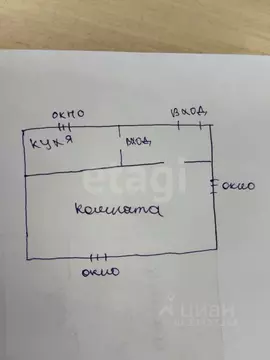 окно
вход
кухя
вход
etagi
окно
комната
окно
циан